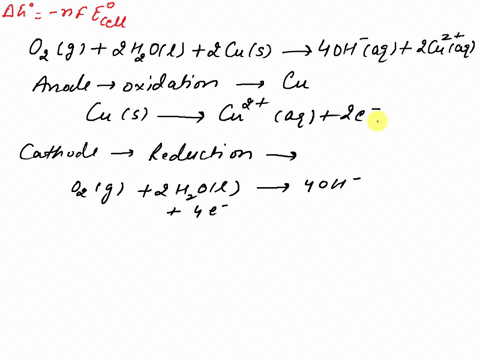 ΔG° = -nFE°cell
O₂(g) + 2H₂O(l) + 2Cu(s) → 4OH⁻(aq) + 2Cu²⁺(aq)
Anode → oxidation → Cu
Cu(s) → Cu²⁺(aq) + 2e⁻
Cathode → Reduction →
O₂(g) + 2H₂O(l) → 4OH⁻
+ 4e⁻